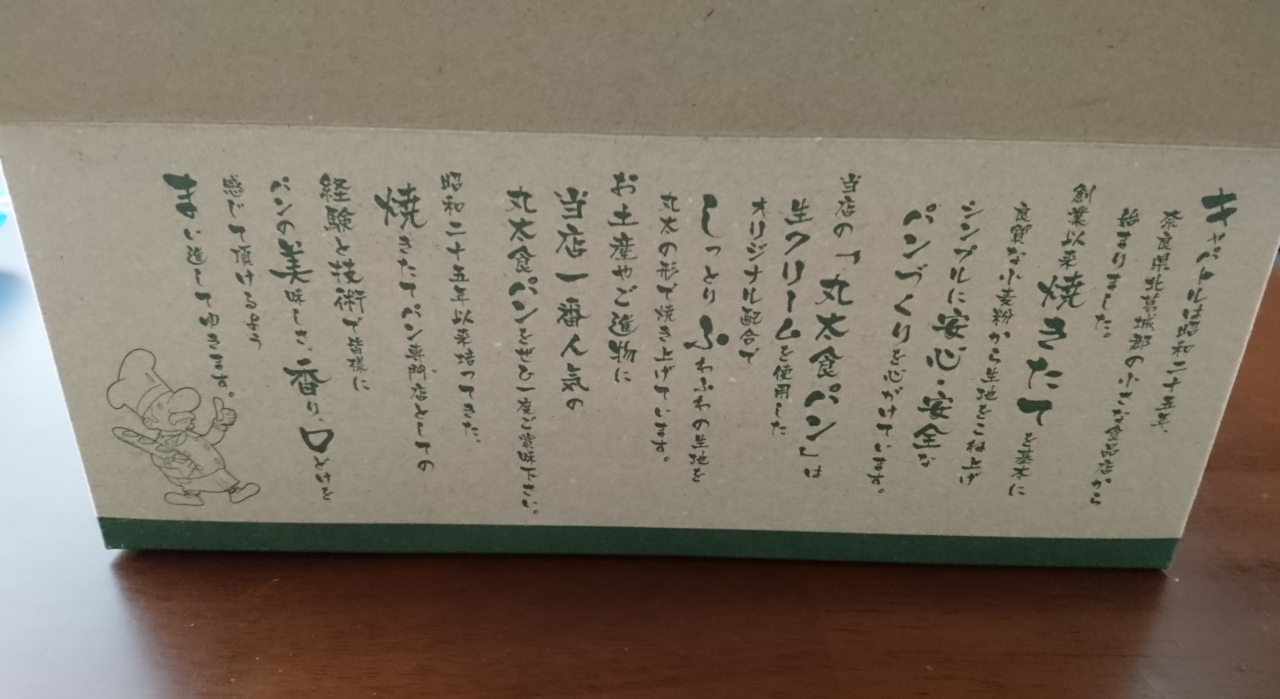 キャパトルは昭和二十五年、
奈良県北葛城郡の小さな食品店から
始まりました。
創業以来焼きたてを基本に
良質な小麦粉から生地をこね上げ
シンプルに安心・安全な
パンづくりを心がけています。
当店の「丸太食パン」は
生クリームを使用した
オリジナル配合で
しっとりふわふわの生地を
丸太の形で焼き上げています。
お土産やご進物に
当店一番人気の
丸太食パンをぜひ一度ご賞味下さい。
昭和二十五年以来培ってきた、
焼きたてパン専門店としての
経験と技術で皆様に
パンの美味しさ、香り、口どけを
感じて頂けるよう
まい進してゆきます。